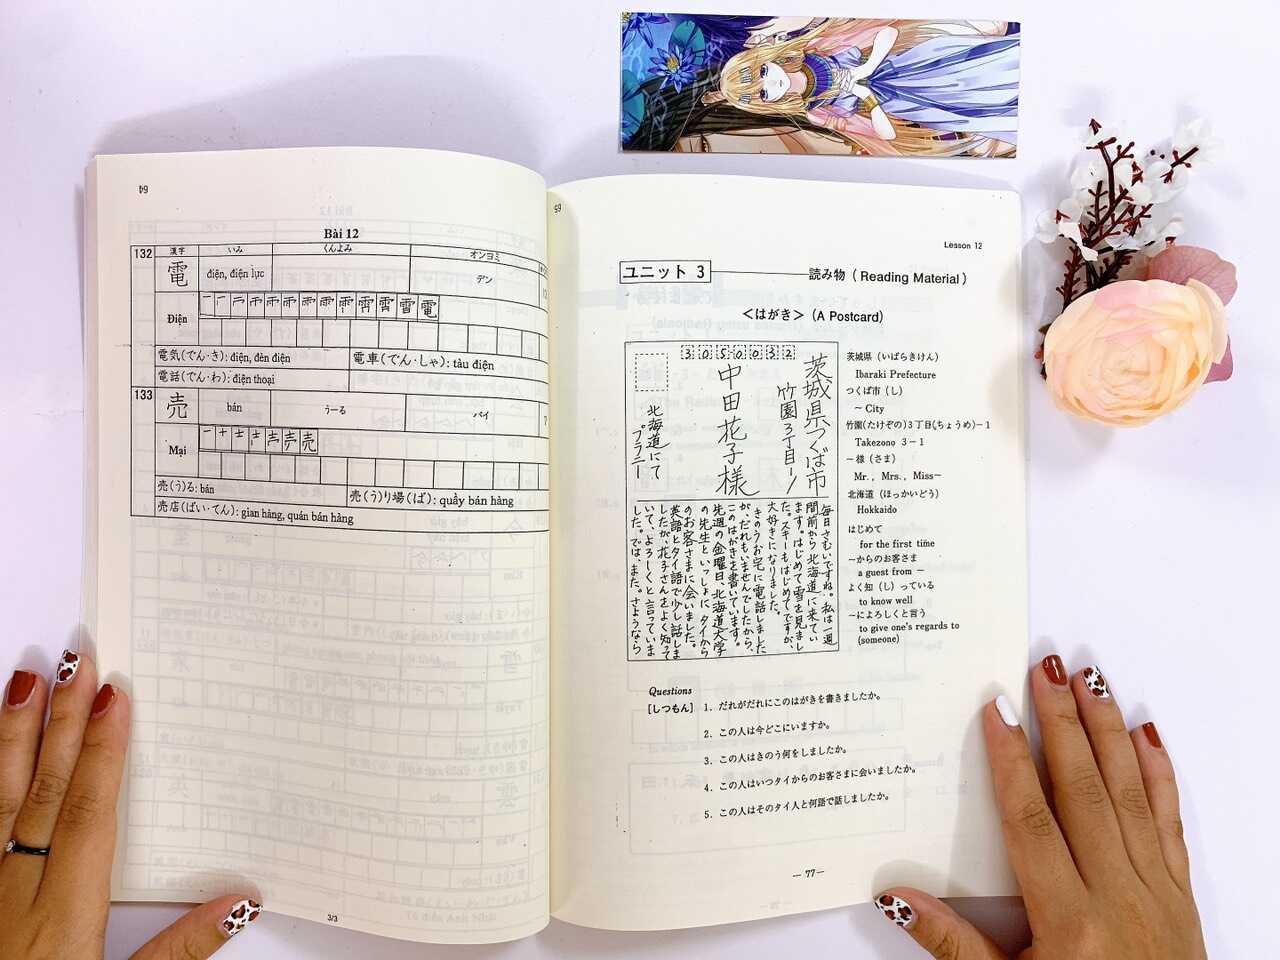 64
Bài 12
132
漢字 いみ くんよみ オンヨミ
電 điện, điện lực デン
Điện
電気(でん・き): điện, đèn điện
電車(でん・しゃ): tàu điện
電話(でん・わ): điện thoại
133
売 bán うーる バイ
Mại
売(う)る: bán
売(う)り場(ば): quầy bán hàng
売店(ばい・てん): gian hàng, quán bán hàng
3/3
65
Lesson 12
ユニット 3
読み物 ( Reading Material )
<はがき> (A Postcard)
3050032
茨城県つくば市
竹園3丁目ー1
中田花子様
北海道にて
プラニー
毎日さむいですね。私は一週
間前から北海道に来てい
ます。はじめて雪を見まし
た。スキーもはじめてですが、
大好きになりました。
きのうお宅に電話しました
が、だれもいませんでしたから、
このはがきを書いています。
先週の金曜日、北海道大学
の先生といっしょにタイから
のお客さまに会いました。
英語とタイ語で少し話しま
したが、花子さんをよく知って
いて、よろしくと言っていま
した。では、また。さようなら
茨城県(いばらきけん)
Ibaraki Prefecture
つくば市(し)
~ City
竹園(たけぞの)3丁目(ちょうめ)−1
Takezono 3−1
~様(さま)
Mr., Mrs., Miss~
北海道(ほっかいどう)
Hokkaido
はじめて
for the first time
~からのお客さま
a guest from ~
よく知(し)っている
to know well
~によろしくと言う
to give one's regards to
(someone)
Questions
[しつもん] 1. だれがだれにこのはがきを書きましたか。
2. この人は今どこにいますか。
3. この人はきのう何をしましたか。
4. この人はいつタイからのお客さまに会いましたか。
5. この人はそのタイ人と何語で話しましたか。
— 77—